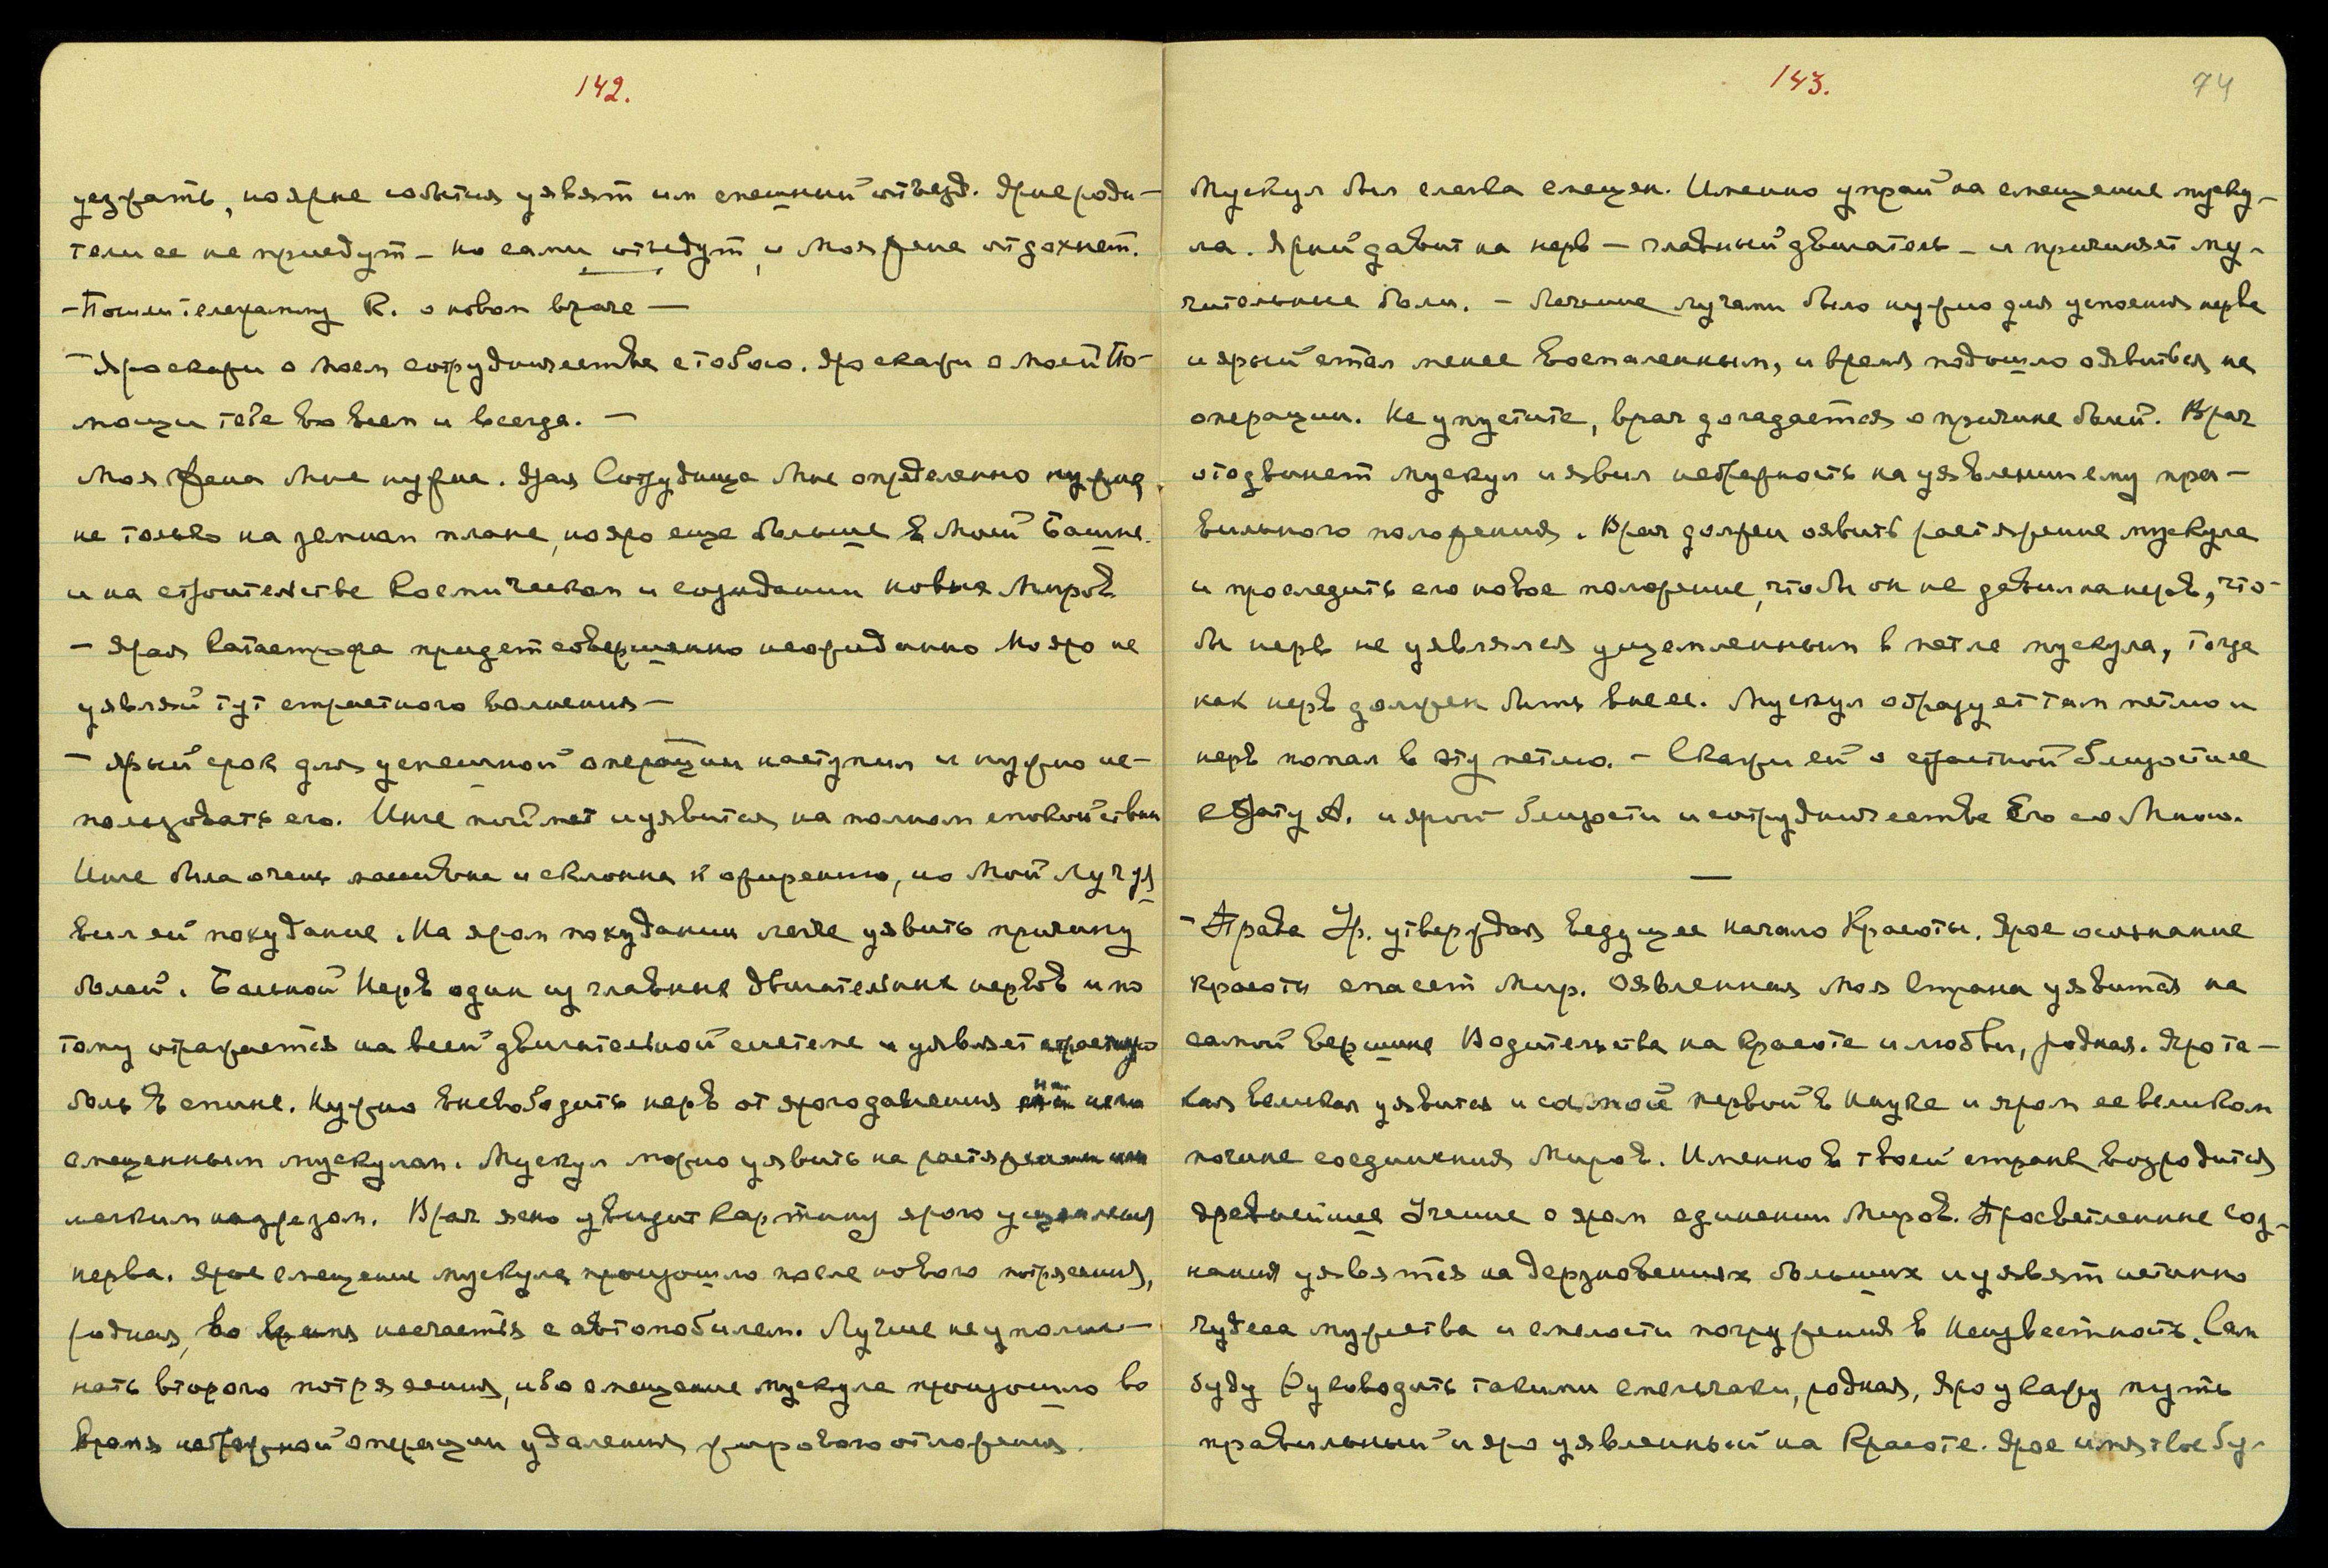 142.
уезжать, но ярые события уявят им спешный отъезд. Ярые роди-
тели ее не приедут – но сами отъедут, и Моя Жена отдохнет.
– Пошли телеграмму К. о новом враче –
– Яро скажи о Моем сотрудничестве с тобою. Яро скажи о Моей По-
мощи тебе во всем и всегда. –
Моя Жена Мне нужна. Ярая Сотрудница Мне определенно нужна
не только на земном плане, но яро еще больше в Моей Башне
и на строительстве Космическом и созидании новых Миров
– Ярая Катастрофа придет совершенно неожиданно Но яро не
уявляй тут страстного волнения –
– Ярый срок для успешной операции наступил и нужно ис-
пользовать его. Инге поймет и уявится на полном спокойствии
Инге была очень полна и склонна к ожирению, но Мой Луч уя
вил ей похудание. На яром похудании легче уявить причину
болей. Больной Нерв один из главных двигательных нервов и по
тому отражается на всей двигательной системе и уявляет страстную
боль в спине. Нужно высвободить нерв от ярого давления на него
смещенным мускулом. Мускул можно уявить на растяжении или
легким надрезом. Врач ясно увидит картину ярого ущемления
нерва. Ярое смещение мускула произошло после нового потрясения,
родная, во время несчастья с автомобилем. Лучше не упоми-
нать второго потрясения, ибо смещение мускула произошло во
время небрежной операции удаления жирового отложения.
143.
74
Мускул был слегка смещен. Именно упрай на смещение муску-
ла. Ярый давит на нерв – главный двигатель – и причиняет му-
чительные боли. – Лечение лучами было нужно для успокоения нерва
и ярый стал менее воспаленным, и время подошло оявиться на
операции. Не упустите, врач догадается о причине болей. Врач
отодвинет мускул и явил небрежность на уявлении ему пра-
вильного положения. Врач должен оявить растяжение мускула
и проследить его новое положение, чтобы он не давил на нерв, что-
бы нерв не уявлялся ущемленным в петле мускула, тогда
как нерв должен быть вне ее. Мускул образует там петлю и
нерв попал в эту петлю. – Скажи ей о страстной близости ее
к Брату А. и ярой близости и сотрудничестве Его со Мною.
—
– Права Ур. утверждая ведущее начало Красоты. Ярое осознание
красоты спасет Мир. Оявленная Моя Страна уявится на
самой вершине Водительства на Красоте и любви, родная. Яро та-
кая великая уявится и самой первой в Науке и яром ее великом
почине соединения Миров. Именно в твоей стране возродится
древнейшее Учение о яром единении Миров. Просветленные соз-
нания уявятся на дерзновениях больших и уявят истинно
чудеса мужества и смелости погружения в Неизвестность. Сам
буду Руководить такими смельчаками, родная, Яро укажу путь
правильный и яро уявленный на Красоте. Ярое имя твое бу-